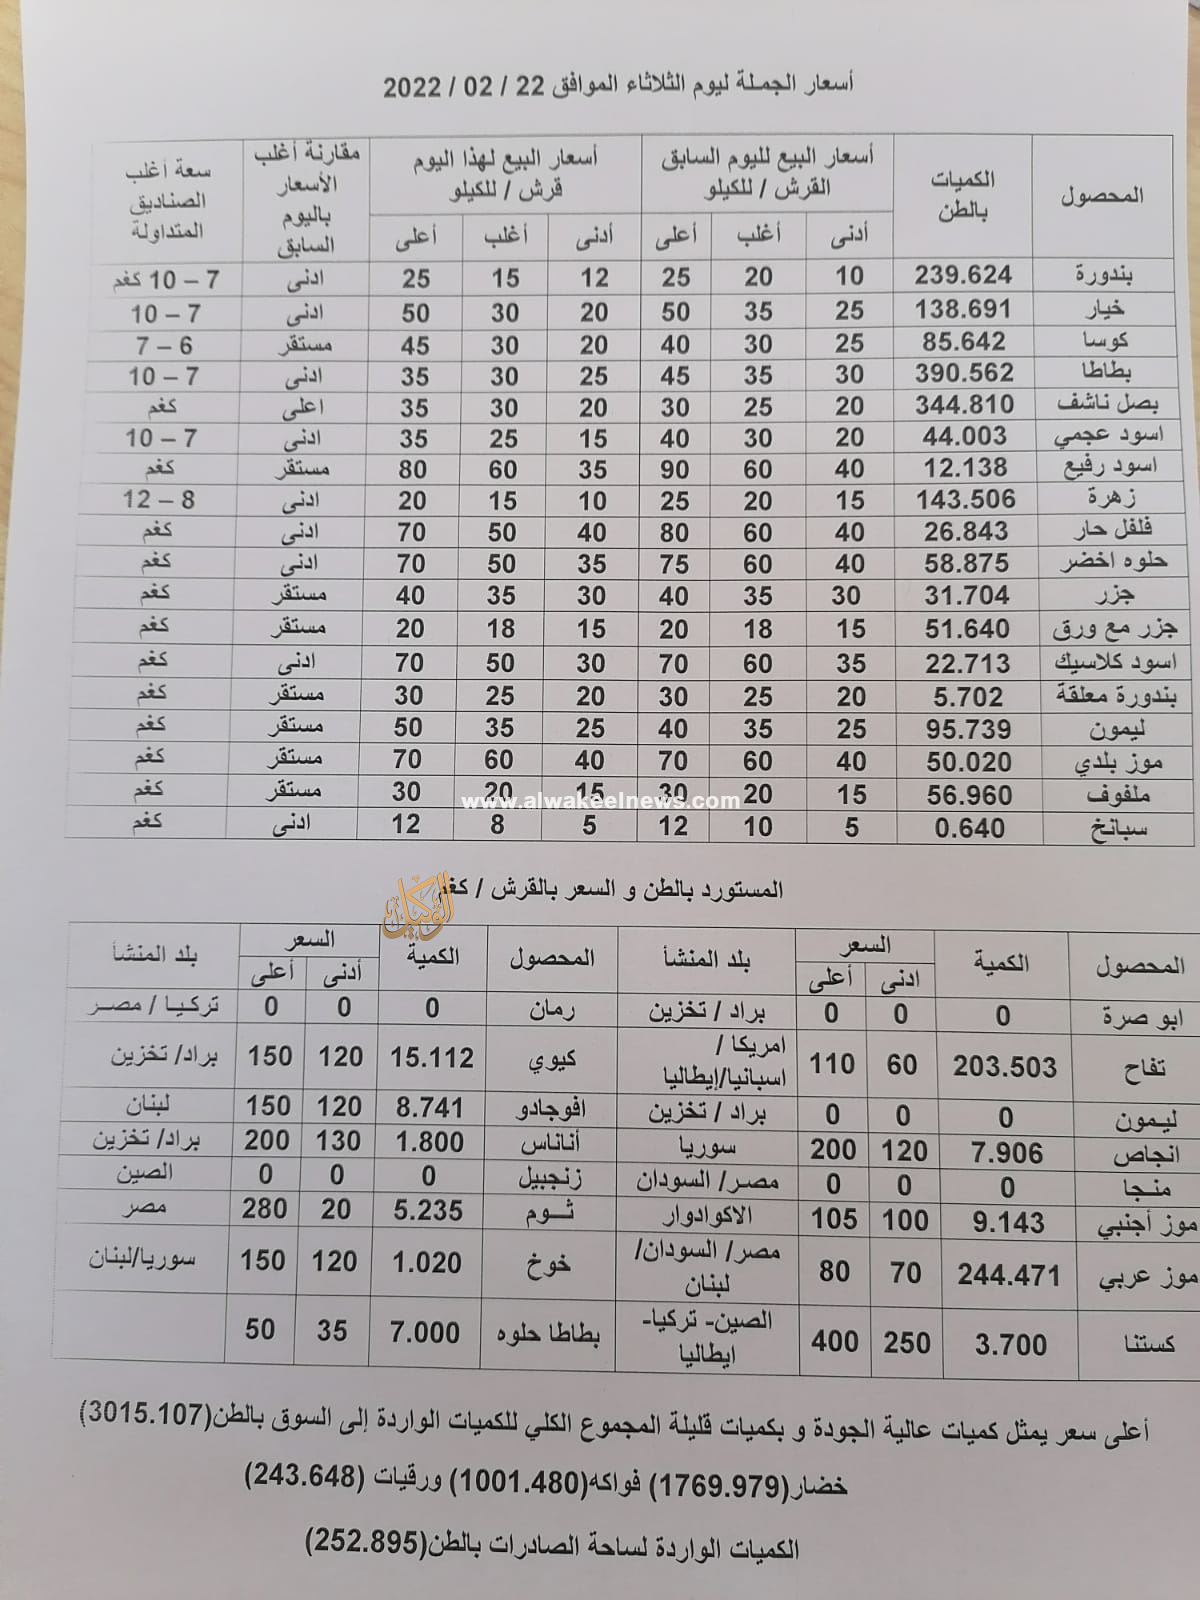 أسعار الجملة ليوم الثلاثاء الموافق 22 / 02 / 2022
المحصول الكميات بالطن أسعار البيع لليوم السابق القرش / للكيلو أسعار البيع لهذا اليوم قرش / للكيلو مقارنة أغلب الأسعار باليوم السابق سعة أغلب الصناديق المتداولة
أدنى أغلب أعلى أدنى أغلب أعلى
بندورة 239.624 10 20 25 12 15 25 ادنى 7 – 10 كغم
خيار 138.691 25 35 50 20 30 50 ادنى 7 – 10
كوسا 85.642 25 30 40 20 30 45 مستقر 6 – 7
بطاطا 390.562 30 35 45 25 30 35 ادنى 7 – 10
بصل ناشف 344.810 20 25 30 20 30 35 اعلى كغم
اسود عجمي 44.003 20 30 40 15 25 35 ادنى 7 – 10
اسود رفيع 12.138 40 60 90 35 60 80 مستقر كغم
زهرة 143.506 15 20 25 10 15 20 ادنى 8 – 12
فلفل حار 26.843 40 60 80 40 50 70 ادنى كغم
حلوه اخضر 58.875 40 60 75 35 50 70 ادنى كغم
جزر 31.704 30 35 40 30 35 40 مستقر كغم
جزر مع ورق 51.640 15 18 20 15 18 20 مستقر كغم
اسود كلاسيك 22.713 35 60 70 30 50 70 ادنى كغم
بندورة معلقة 5.702 20 25 30 20 25 30 مستقر كغم
ليمون 95.739 25 35 40 25 35 50 مستقر كغم
موز بلدي 50.020 40 60 70 40 60 70 مستقر كغم
ملفوف 56.960 15 20 30 15 20 30 مستقر كغم
www.alwakeelnews.com
سبانخ 0.640 5 10 12 5 8 12 ادنى كغم
المستورد بالطن و السعر بالقرش / كغم
الوكيل
المحصول الكمية السعر بلد المنشأ المحصول الكمية السعر بلد المنشأ
ادنى أعلى أدنى أعلى
ابو صرة 0 0 0 براد / تخزين رمان 0 0 0 تركيا / مصر
تفاح 203.503 60 110 امريكا / اسبانيا/إيطاليا كيوي 15.112 120 150 براد/ تخزين
ليمون 0 0 0 براد / تخزين افوجادو 8.741 120 150 لبنان
انجاص 7.906 120 200 سوريا أناناس 1.800 130 200 براد/ تخزين
منجا 0 0 0 مصر/ السودان زنجبيل 0 0 0 الصين
موز أجنبي 9.143 100 105 الاكوادوار ثوم 5.235 20 280 مصر
موز عربي 244.471 70 80 مصر/ السودان/ لبنان خوخ 1.020 120 150 سوريا/لبنان
كستنا 3.700 250 400 الصين- تركيا- ايطاليا بطاطا حلوه 7.000 35 50
أعلى سعر يمثل كميات عالية الجودة و بكميات قليلة المجموع الكلي للكميات الواردة إلى السوق بالطن(3015.107)
خضار(1769.979) فواكه(1001.480) ورقيات (243.648)
الكميات الواردة لساحة الصادرات بالطن(252.895)